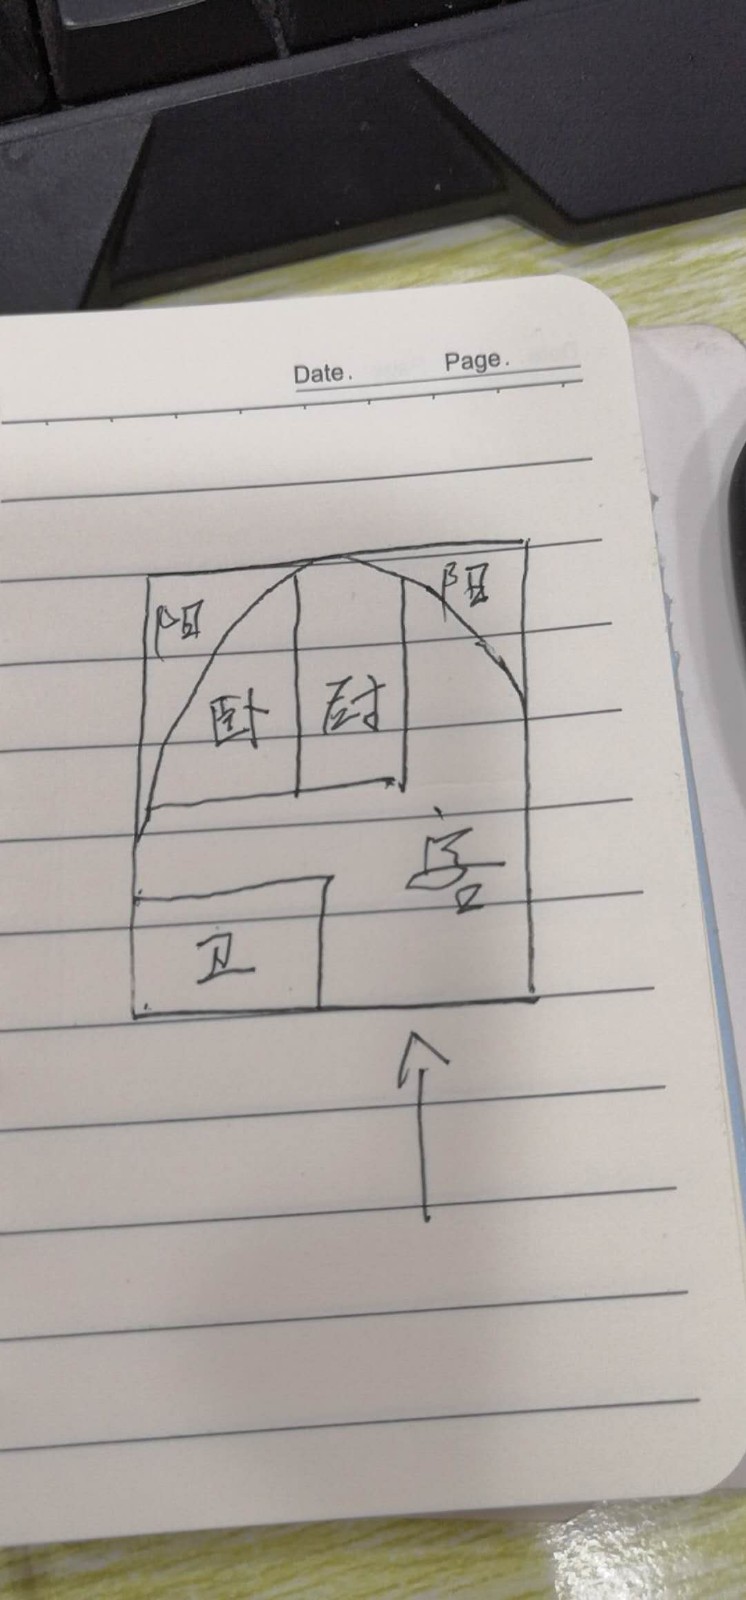 Date. Page.
阳
阳
卧
厨
客
卫